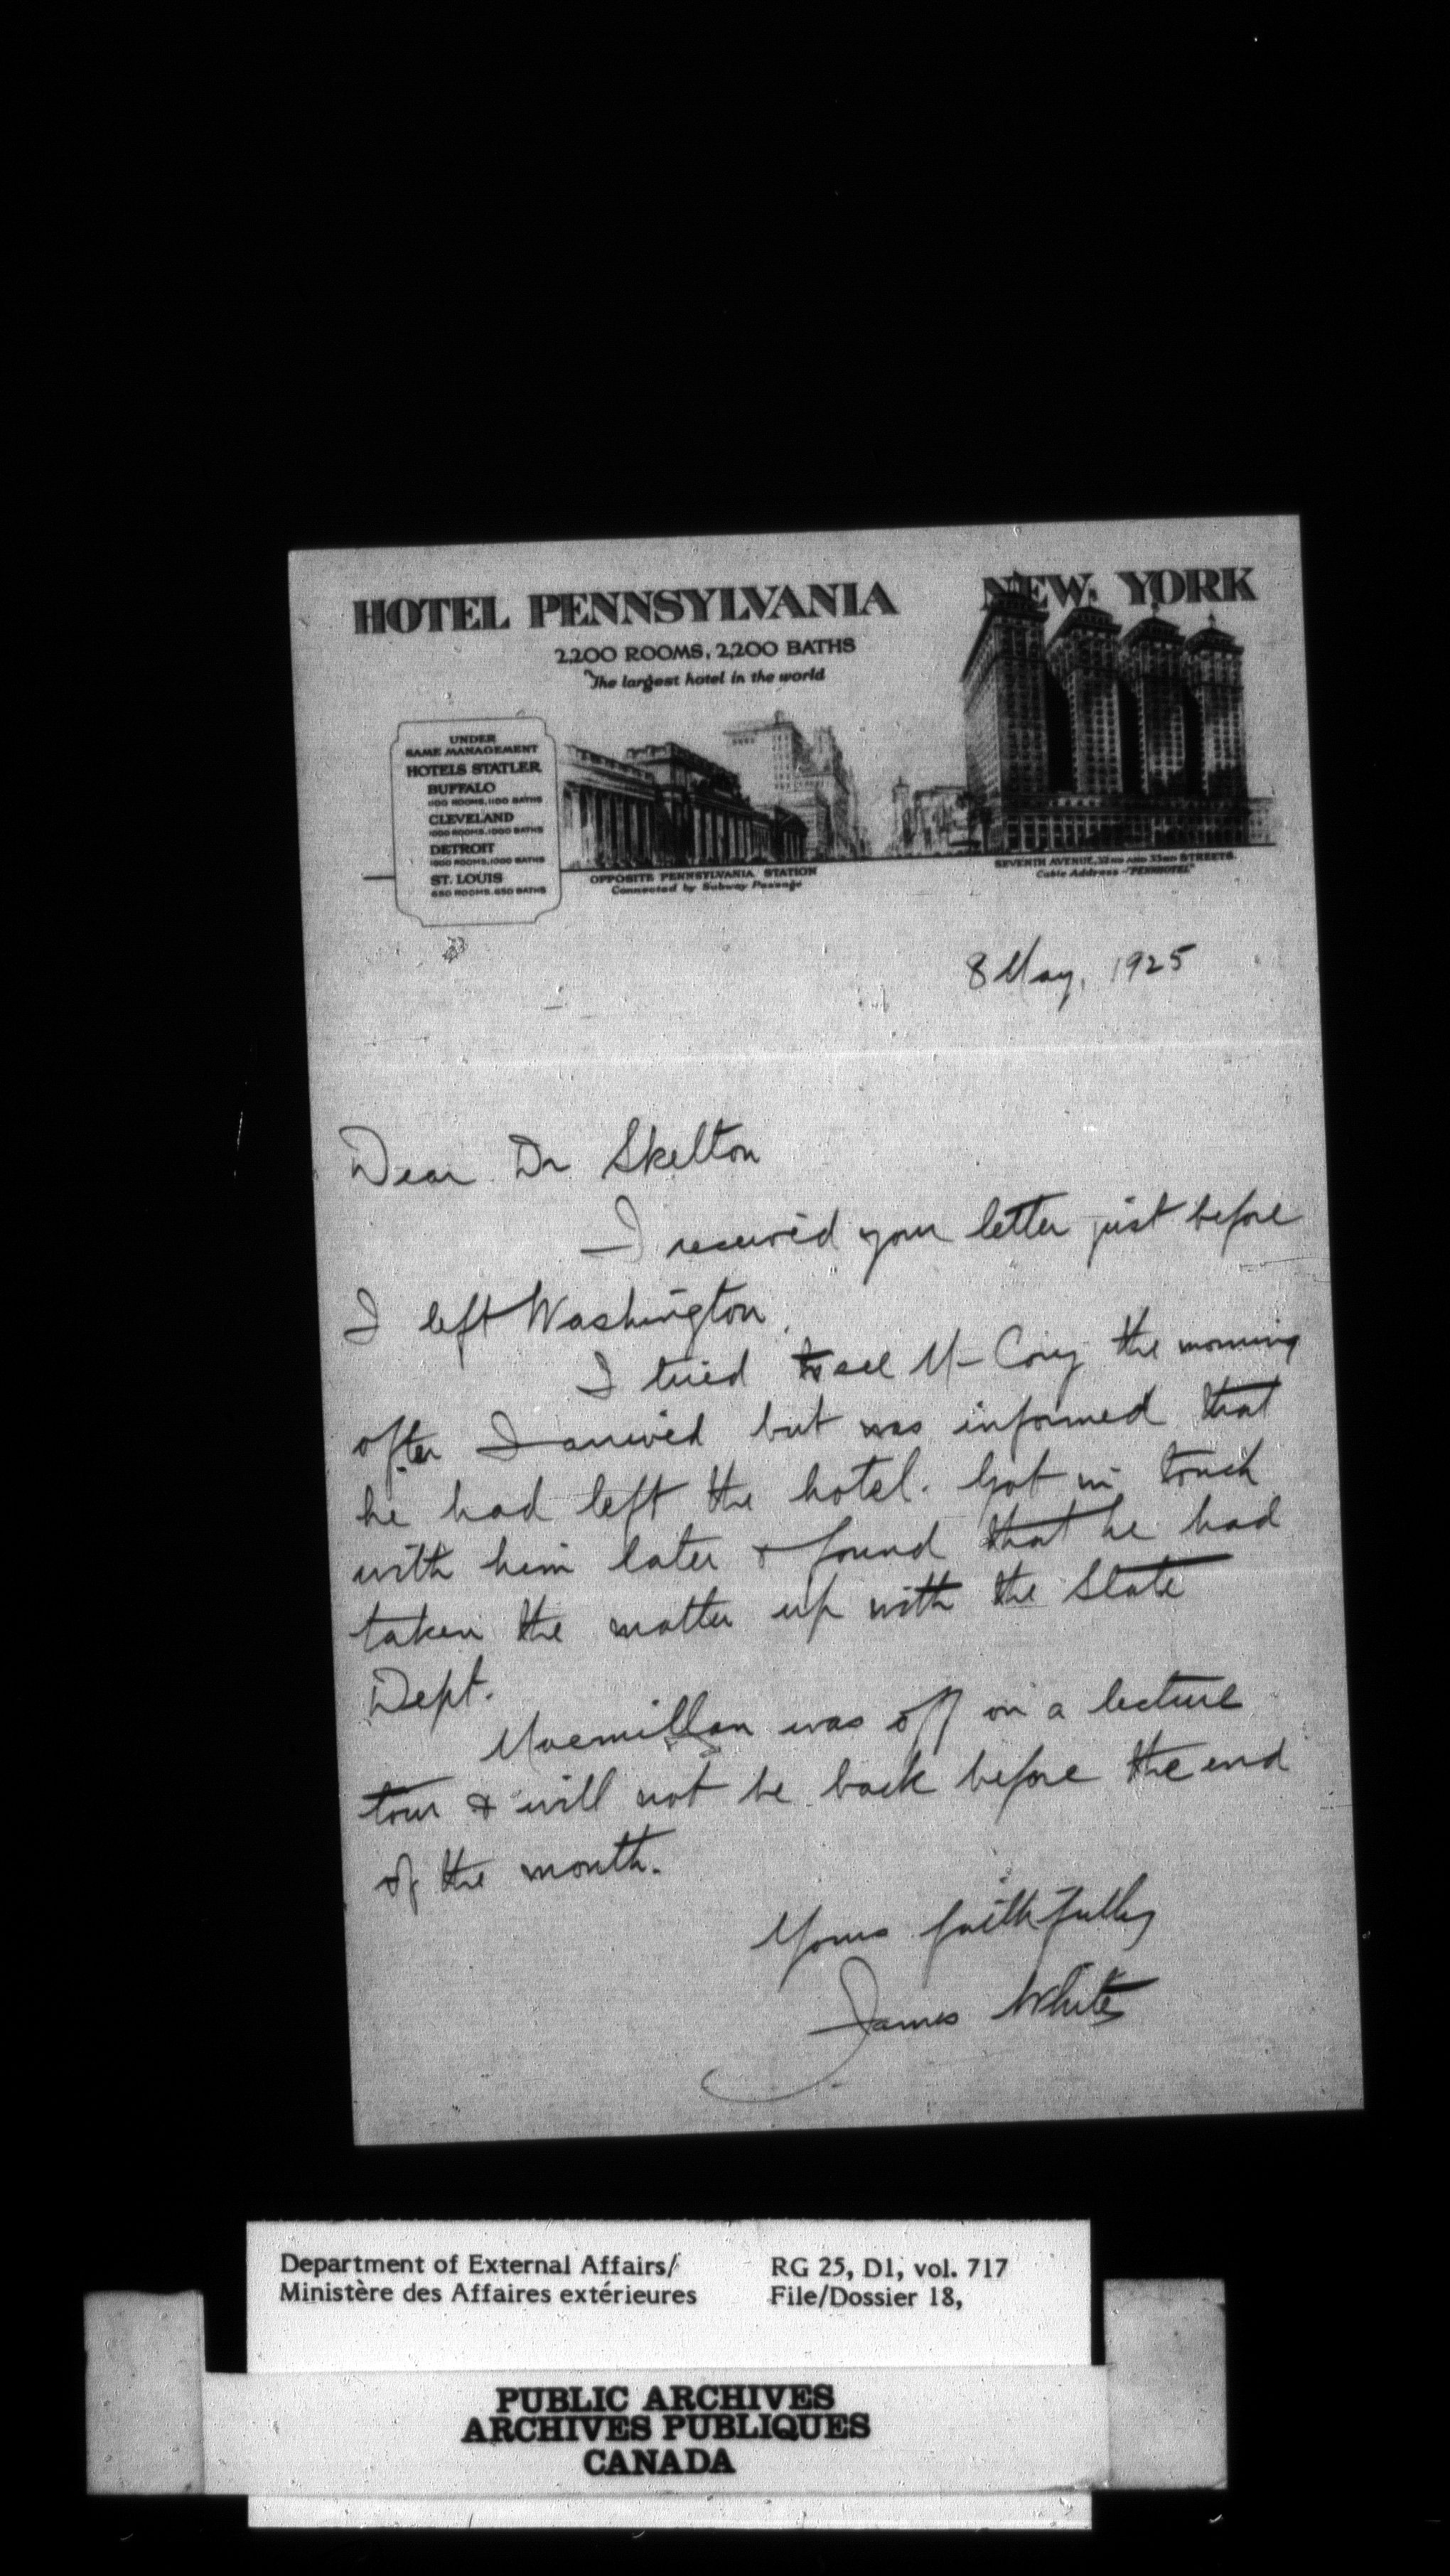 HOTEL PENNSYLVANIA NEW YORK
2,200 ROOMS, 2,200 BATHS
The largest hotel in the world
UNDER
SAME MANAGEMENT
HOTELS STATLER
BUFFALO
1100 ROOMS, 1100 BATHS
CLEVELAND
1000 ROOMS, 1000 BATHS
DETROIT
1000 ROOMS, 1000 BATHS
ST. LOUIS
650 ROOMS, 650 BATHS
OPPOSITE PENNSYLVANIA STATION
Connected by Subway Passage
SEVENTH AVENUE, 32ND AND 33RD STREETS
Cable Address - "PENNHOTEL"
8 May, 1925
Dear Dr Skelton
I received your letter just before
I left Washington.
I tried to see the morning
after I arrived but was informed that
he had left the hotel. Got in touch
with him later & found that he had
taken the matter up with the State
Dept.
Macmillan was off on a lecture
tour & will not be back before the end
of the month.
Yours faithfully
James White
Department of External Affairs/
Ministère des Affaires extérieures
RG 25, D1, vol. 717
File/Dossier 18,
PUBLIC ARCHIVES
ARCHIVES PUBLIQUES
CANADA